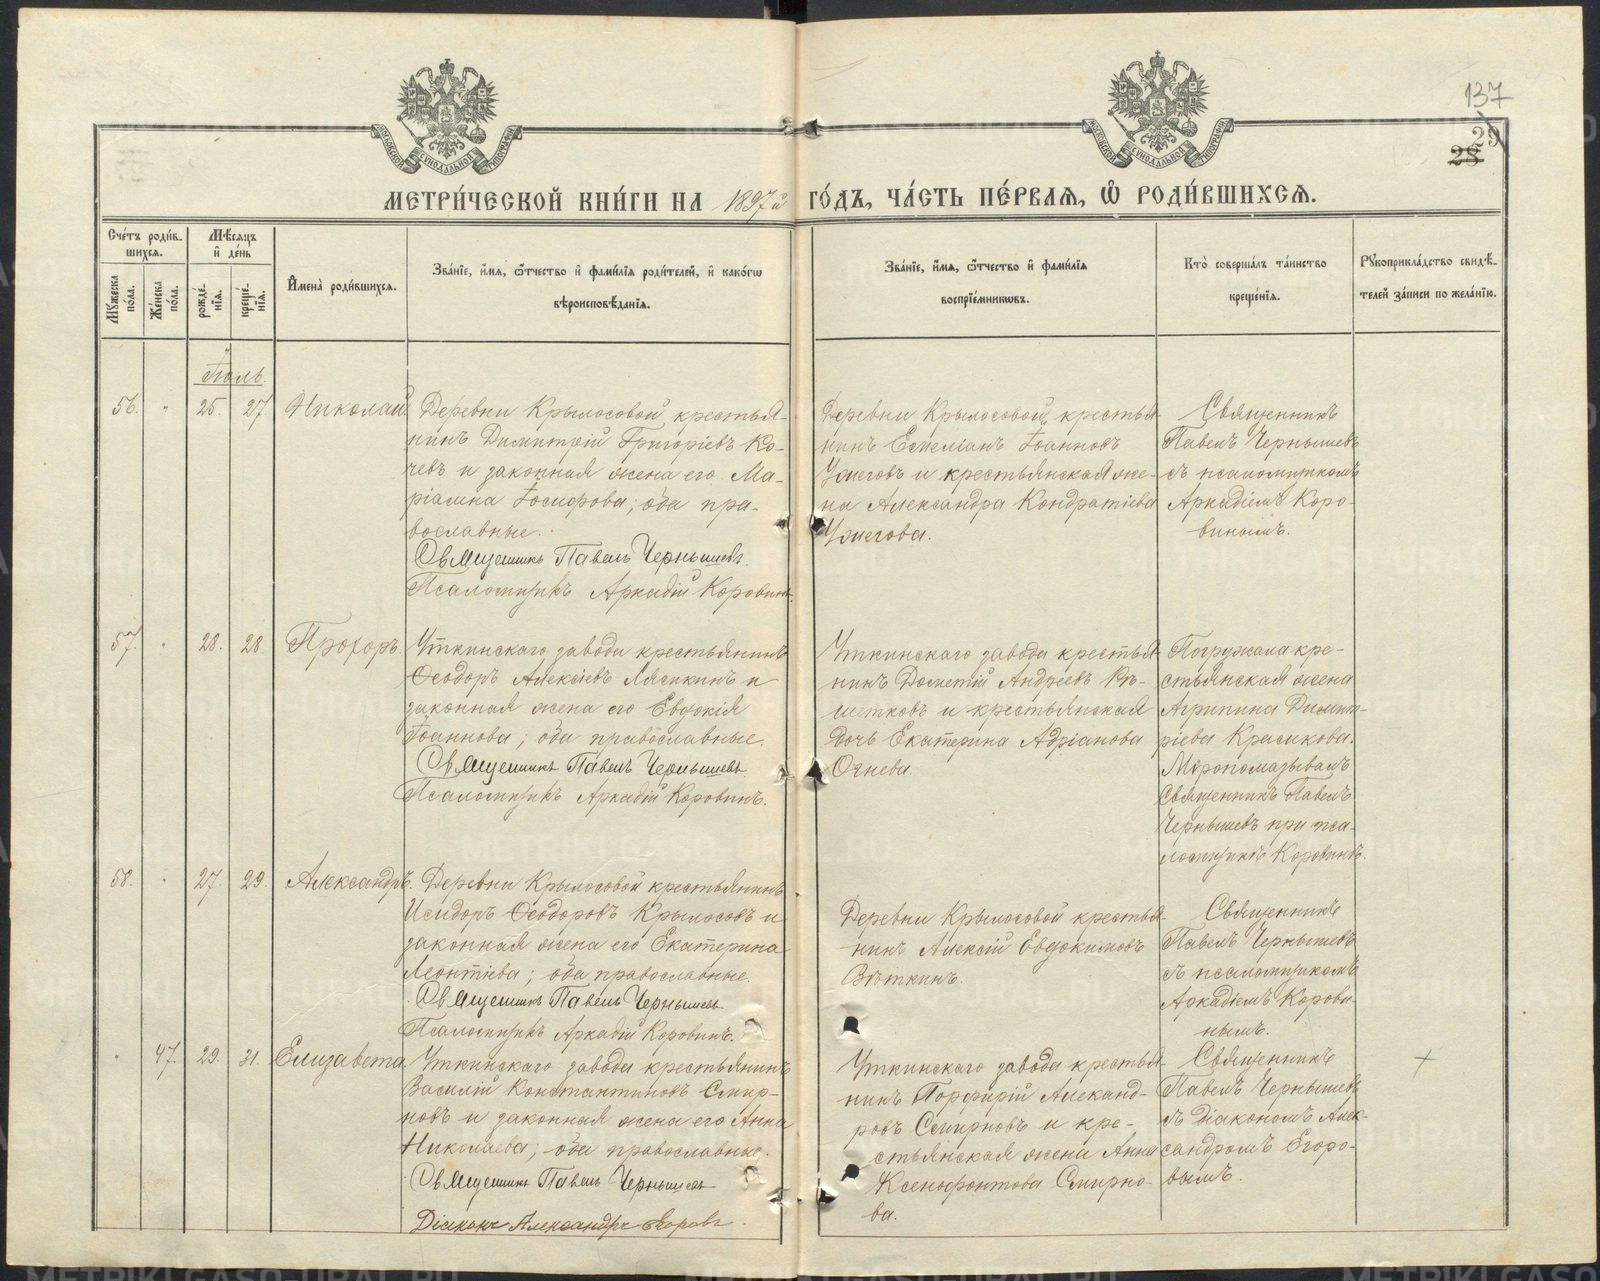 137
29
28
МЕТРИ́ЧЕСКОЙ КНИ́ГИ НА 1897й ГО́ДЪ, ЧА́СТЬ ПЕ́РВАЯ, Ѡ РОДИ́ВШИХСЯ.
Сче́тъ роди́в-
шихся.
Мѣ́сяцъ
и҆ де́нь
Мꙋ́жеска по́ла.
Же́нска по́ла.
рожде́-
нїѧ.
креще́-
нїѧ.
И҆мена̀ роди́вшихся.
Зва́нїе, и҆́мя, ѻ҆́тчество и҆ фами́лїя роди́телей, и҆ како́гѡ
вѣроисповѣ́данїя.
Зва́нїе, и҆́мя, ѻ҆́тчество и҆ фами́лїя
воспрїе́мникѡвъ.
Кто̀ соверша́лъ та́инство
креще́нїя.
Рꙋкоприкла́дство свидѣ́-
телей за́писи по жела́нїю.
Іюль.
56. " 25. 27 Николай
Деревни Крылосовой крестья-
нинъ Димитрій Григоріевъ Ко-
чевъ и законная жена его Ма-
ріамна Іосифова; оба пра-
вославные.
Священникъ Павелъ Чернышевъ
Псаломщикъ Аркадій Коровинъ.
Деревни Крылосовой крестья-
нинъ Емеліанъ Іоанновъ
Ужеговъ и крестьянская же-
на Александра Кондратіева
Ужегова.
Священникъ
Павелъ Чернышевъ
съ псаломщикомъ
Аркадіемъ Коро-
винымъ.
57. " 28. 28. Прохоръ.
Уткинскаго завода крестьянинъ
Ѳеодоръ Алексіевъ Лясикинъ и
законная жена его Евдокія
Іоаннова; оба православные.
Священникъ Павелъ Чернышевъ
Псаломщикъ Аркадій Коровинъ.
Уткинскаго завода крестья-
нинъ Дометій Андреевъ Рѣ-
шетковъ и крестьянская
дочь Екатерина Адріанова
Огнева.
Погружала кре-
стьянская жена
Агрипина Димит-
ріева Красикова.
Мѵропомазывалъ
Священникъ Павелъ
Чернышевъ при пса-
ломщикѣ Коровинѣ.
58. " 27. 29. Александръ.
Деревни Крылосовой крестьянинъ
Исидоръ Ѳеодоровъ Крылосовъ и
законная жена его Екатерина
Леонтіева; оба православные.
Священникъ Павелъ Чернышевъ
Псаломщикъ Аркадій Коровинъ.
Деревни Крылосовой крестья-
нинъ Алексій Евдокимовъ
Вяткинъ.
Священникъ
Павелъ Чернышевъ
съ псаломщикомъ
Аркадіемъ Корови-
нымъ.
" 47. 29. 31. Елизавета.
Уткинскаго завода крестьянинъ
Василій Константиновъ Смир-
новъ и законная жена его Анна
Николаева; оба православные.
Священникъ Павелъ Чернышевъ
Діаконъ Александръ Егоровъ.
Уткинскаго завода крестья-
нинъ Порфирій Александ-
ровъ Смирновъ и кре-
стьянская жена Анна
Ксенофонтова Смирно-
ва.
Священникъ
Павелъ Чернышевъ
съ діакономъ Алек-
сандромъ Егоро-
вымъ.